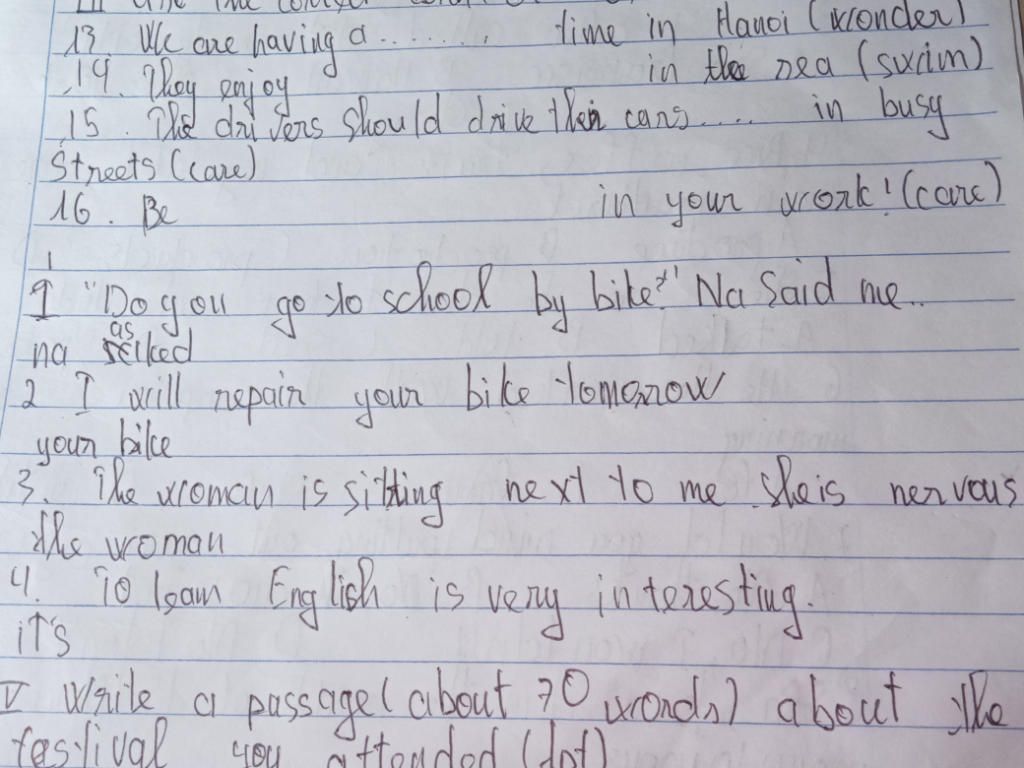 13. We are having a ......... time in Hanoi (wonder)
14. They enjoy in the sea (swim)
15. The drivers should drive their cars.... in busy
Streets (care)
16. Be in your work! (care)
1
1 "Do you go to school by bike?" Na Said me..
na asked
2 I will repair your bike tomorrow
your bike
3. The woman is sitting next to me. she is nervous
the woman
4. To learn English is very interesting.
it's
V Write a passage (about 70 words) about the
festival you attended (lot)